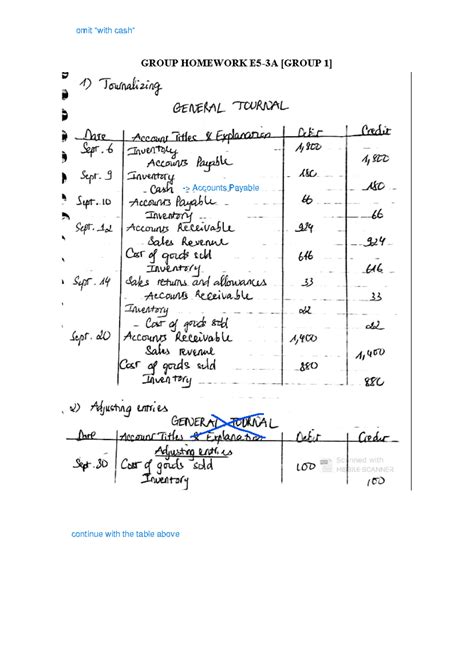 omit "with cash"
GROUP HOMEWORK E5-3A [GROUP 1]
1) Journalizing
GENERAL JOURNAL
Date Account Titles & Explanation Debit Credit
Sept. 6 Inventory 1,800
Accounts Payable 1,800
Sept. 9 Inventory 180
Cash -> Accounts Payable 180
Sept. 10 Accounts Payable 66
Inventory 66
Sept. 12 Accounts Receivable 924
Sales Revenue 924
Cost of goods sold 616
Inventory 616
Sept. 14 Sales returns and allowances 33
Accounts Receivable 33
Inventory 22
Cost of goods sold 22
Sept. 20 Accounts Receivable 1,400
Sales revenue 1,400
Cost of goods sold 880
Inventory 880
2) Adjusting entries
GENERAL JOURNAL
Date Account Titles & Explanation Debit Credit
Adjusting entries
Sept. 30 Cost of goods sold 100
Inventory 100
Scanned with
MOBILE SCANNER
continue with the table above